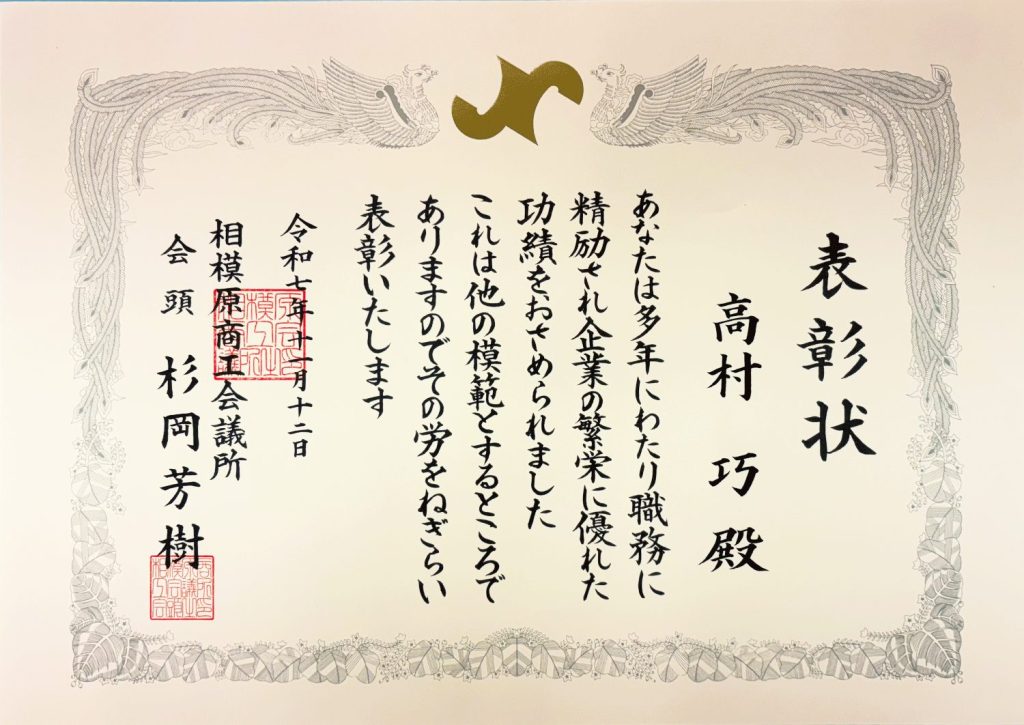 表彰状
高村 巧 殿
あなたは多年にわたり職務に
精励され企業の繁栄に優れた
功績をおさめられました
これは他の模範とするところで
ありますのでその労をねぎらい
表彰いたします
令和七年十一月十二日
相模原商工会議所
会頭 杉岡芳樹